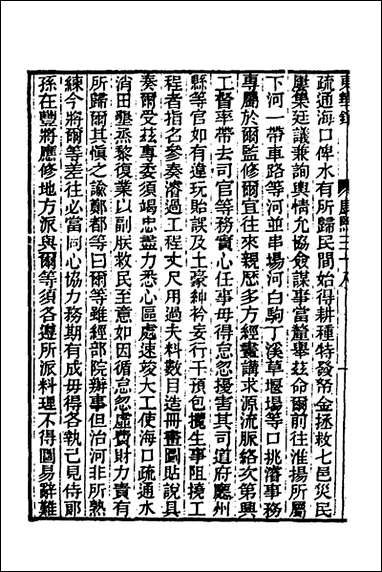 東華錄 康熙三十八 一
疏通海口俾水有所歸民間始得耕種特發帑金拯救七邑災民
屢集廷議兼詢輿情允協僉謀事當釐舉茲命爾前往淮揚所屬
下河一帶車路等河並串場河白駒丁溪草堰場等口挑濬事務
專屬於爾監修爾宜往來親歷多方經畫講求源流脈絡次第興
工督率帶去司官等務實心任事毋得怠忽擾害其司道府廳州
縣等官如有違玩貽誤及土豪紳衿妄行干預包攬生事阻撓工
程者指名參奏濬過工程丈尺用過夫料數目造冊畫圖貼說具
奏爾受茲專委須竭忠盡力悉心區處速竣大工使海口疏通水
消田墾蒸黎復業以副朕救民至意如因循怠忽虛費財力責有
所歸爾其慎之諭鄭都等曰爾等雖經部院辦事但治河非所熟
練今將爾等差往必當同心協力務期有成毋得各執己見侍郎
孫在豐將應修地方派與爾等須各遵所派料理不得圖易辭難